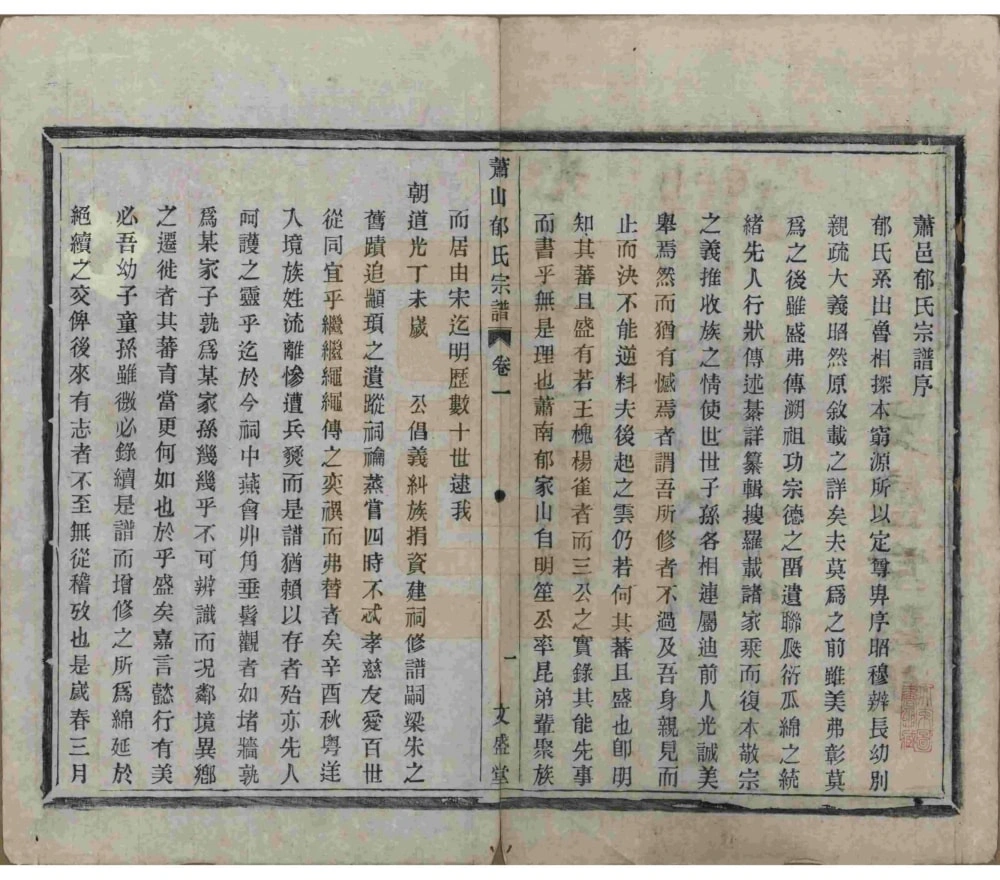 蕭邑郁氏宗譜序
郁氏系出魯相探本窮源所以定尊卑序昭穆辨長幼別
親疏大義昭然原敘載之詳矣夫莫爲之前雖美弗彰莫
爲之後雖盛弗傳溯祖功宗德之留遺聯瓞衍瓜綿之統
緒先人行狀傳述綦詳纂輯搜羅載諸家乘而復本敬宗
之義推收族之情使世世子孫各相連屬迪前人光誠美
舉焉然而猶有憾焉者謂吾所修者不過及吾身親見而
止而決不能逆料夫後起之雲仍若何其蕃且盛也卽明
知其蕃且盛有若王槐楊雀者而三公之實錄其能先事
而書乎無是理也蕭南郁家山自明笙公率昆弟輩聚族
蕭山郁氏宗譜 卷一 一 文盛堂
而居由宋迄明歷數十世逮我
朝道光丁未歲 公倡義糾族捐資建祠修譜嗣梁朱之
舊蹟追顓頊之遺蹤祠禴蒸嘗四時不忒孝慈友愛百世
從同宜乎繼繼繩繩傳之奕禩而弗替者矣辛酉秋粵逆
入境族姓流離慘遭兵燹而是譜猶賴以存者殆亦先人
呵護之靈乎迄於今祠中燕會丱角垂髫觀者如堵牆孰
爲某家子孰爲某家孫幾幾乎不可辨識而况鄰境異鄉
之遷徙者其蕃育當更何如也於乎盛矣嘉言懿行有美
必吾幼子童孫雖微必錄續是譜而增修之所爲綿延於
絕續之交俾後來有志者不至無從稽攷也是歲春三月